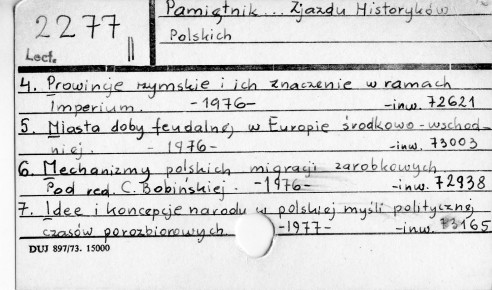 2277 II
Lect.
Pamiętnik... Zjazdu Historyków
Polskich
4. Prowincje rzymskie i ich znaczenie w ramach
Imperium. -1976- -inw. 72621
5. Miasta doby feudalnej w Europie środkowo-wschod-
niej. - 1976- -inw. 73003
6. Mechanizmy polskich migracji zarobkowych
Pod red. C. Bobińskiej. -1976- -inw. 72938
7. Idee i koncepcje narodu w polskiej myśli politycznej
czasów porozbiorowych. -1977- -inw. 73165
DUJ 897/73. 15000